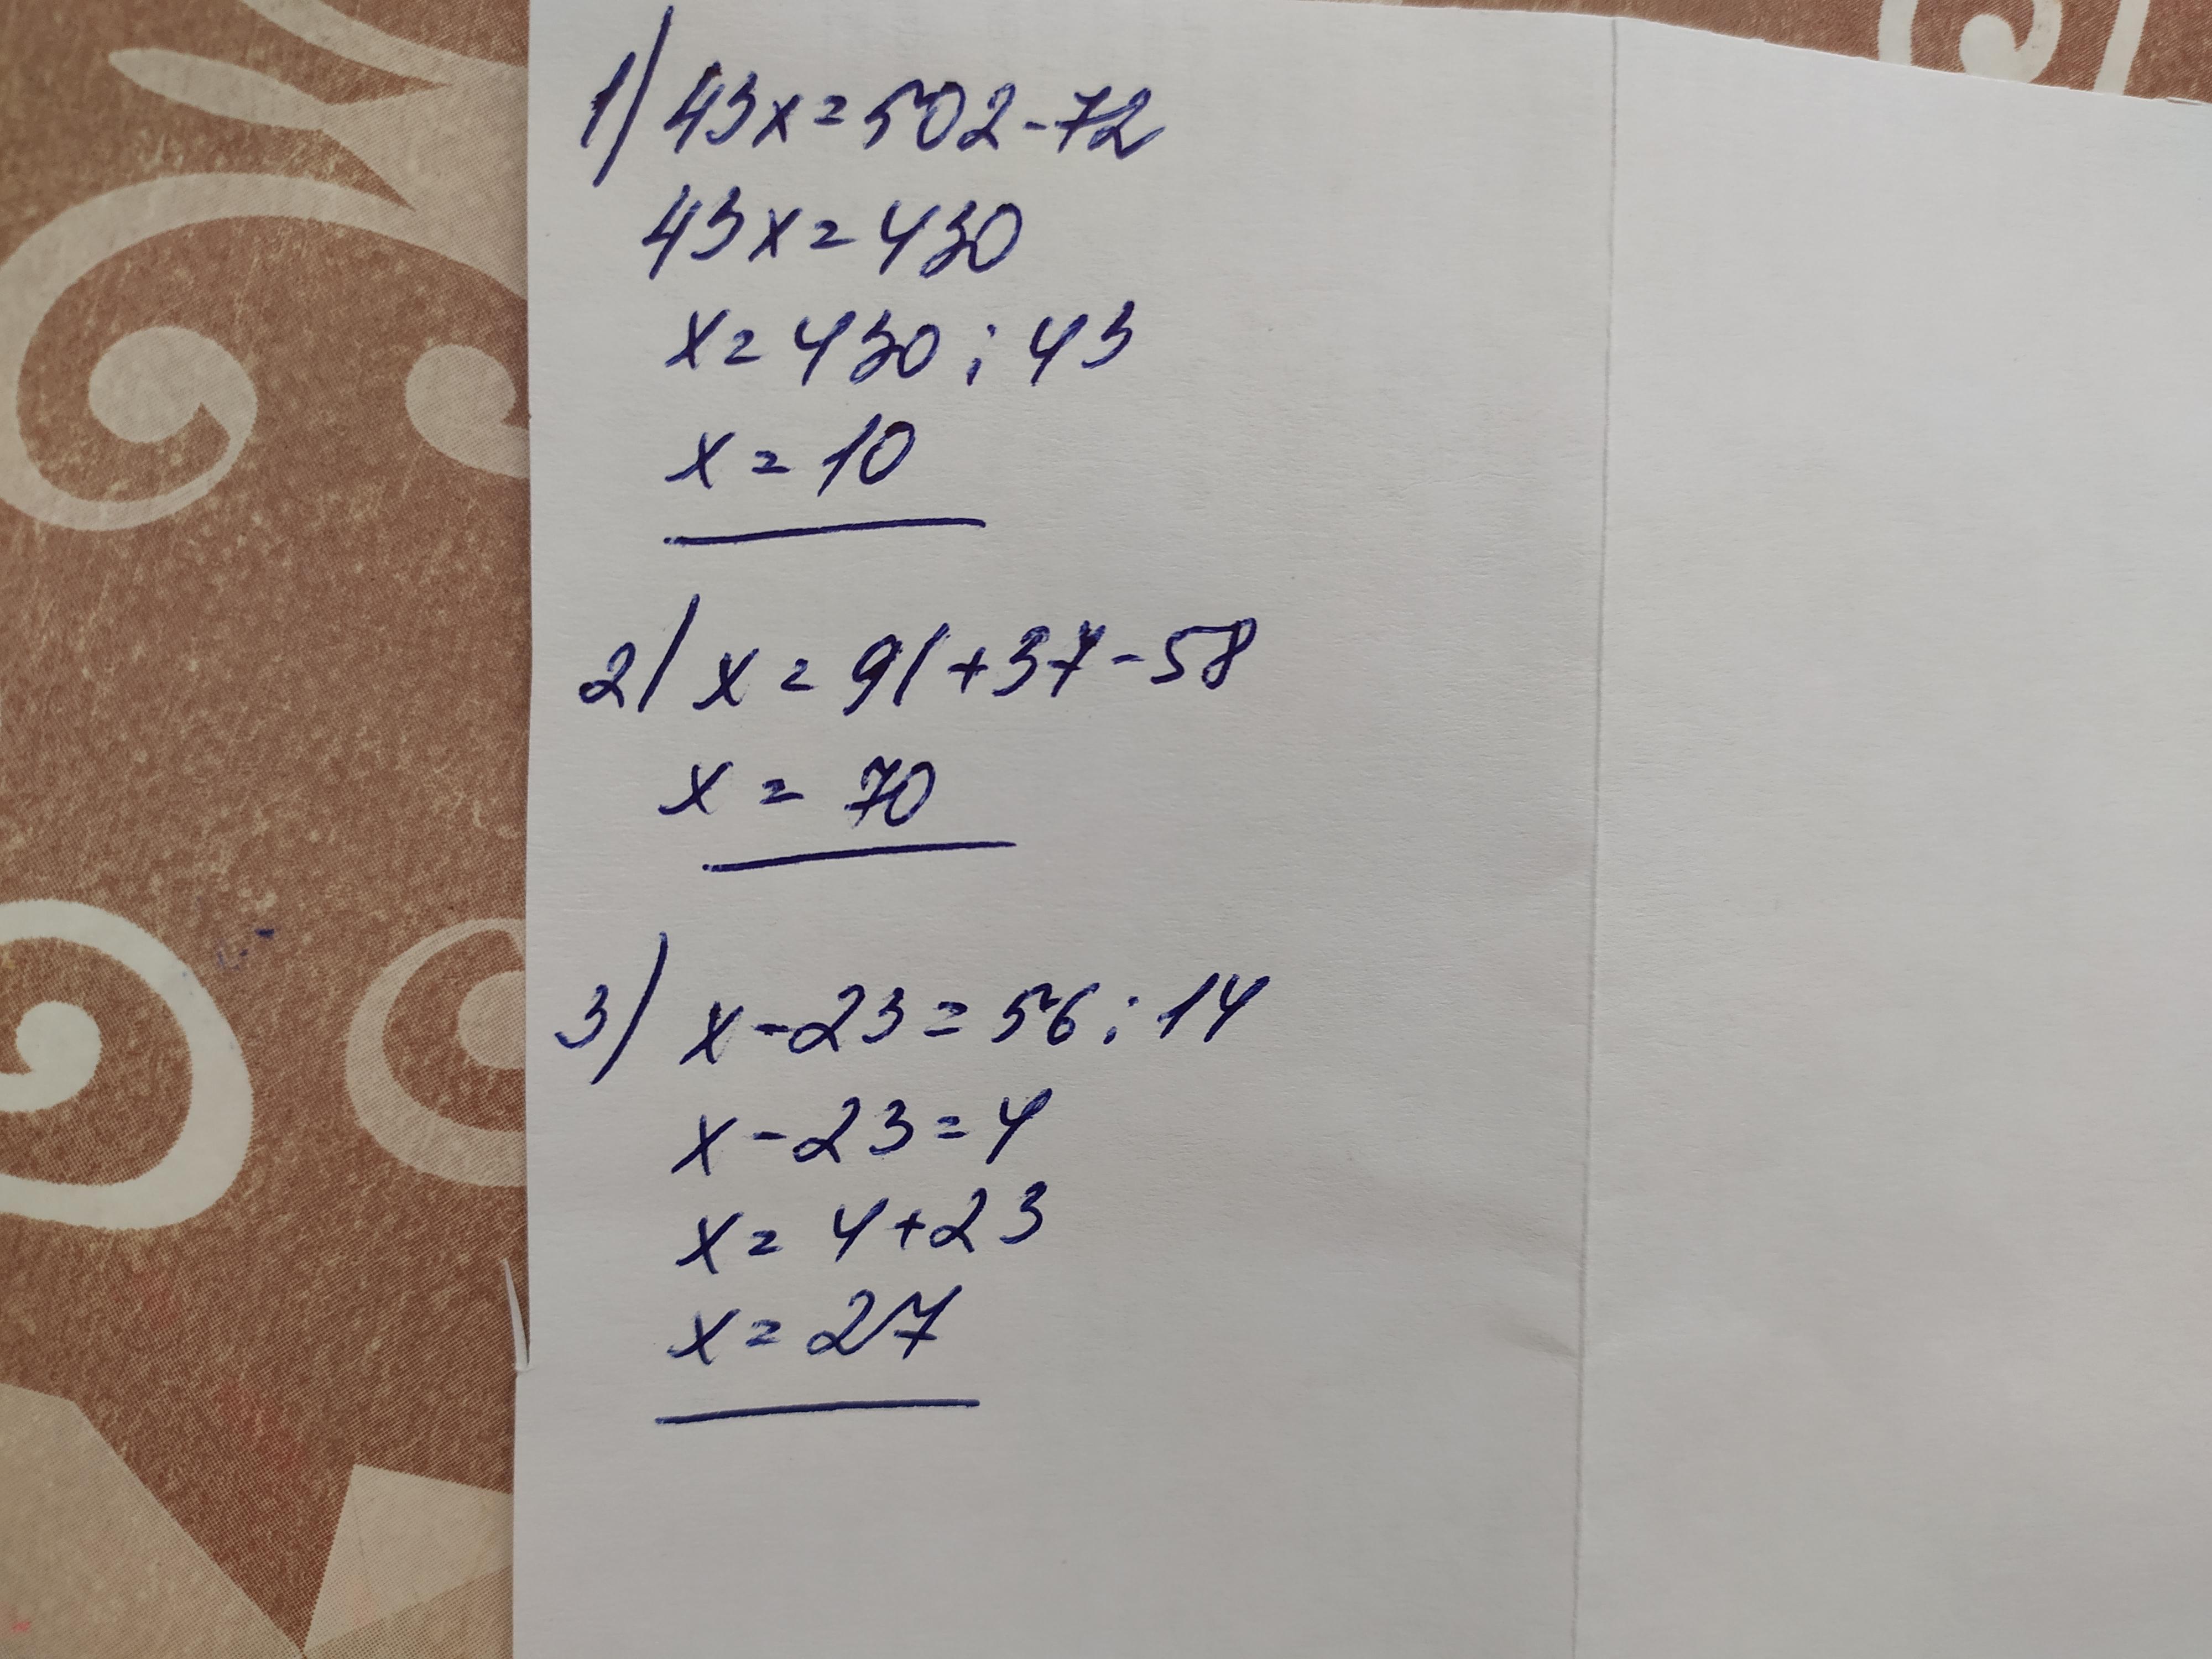 1) 43x=502-72
43x=430
x=430:43
x=10
2) x=91+37-58
x=70
3) x-23=56:14
x-23=4
x=4+23
x=27